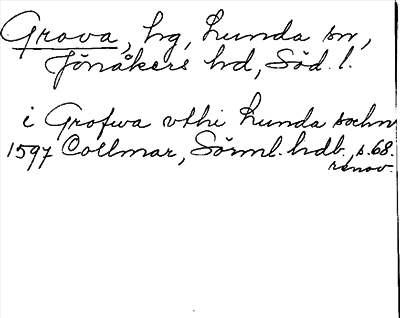 Grova, hg, Lunda sn,
Jönåkers hd, Söd. l.
i Grofwa vthi Lunda sochn
1597 Collmar, Sörml. hdb., s. 68.
renov.